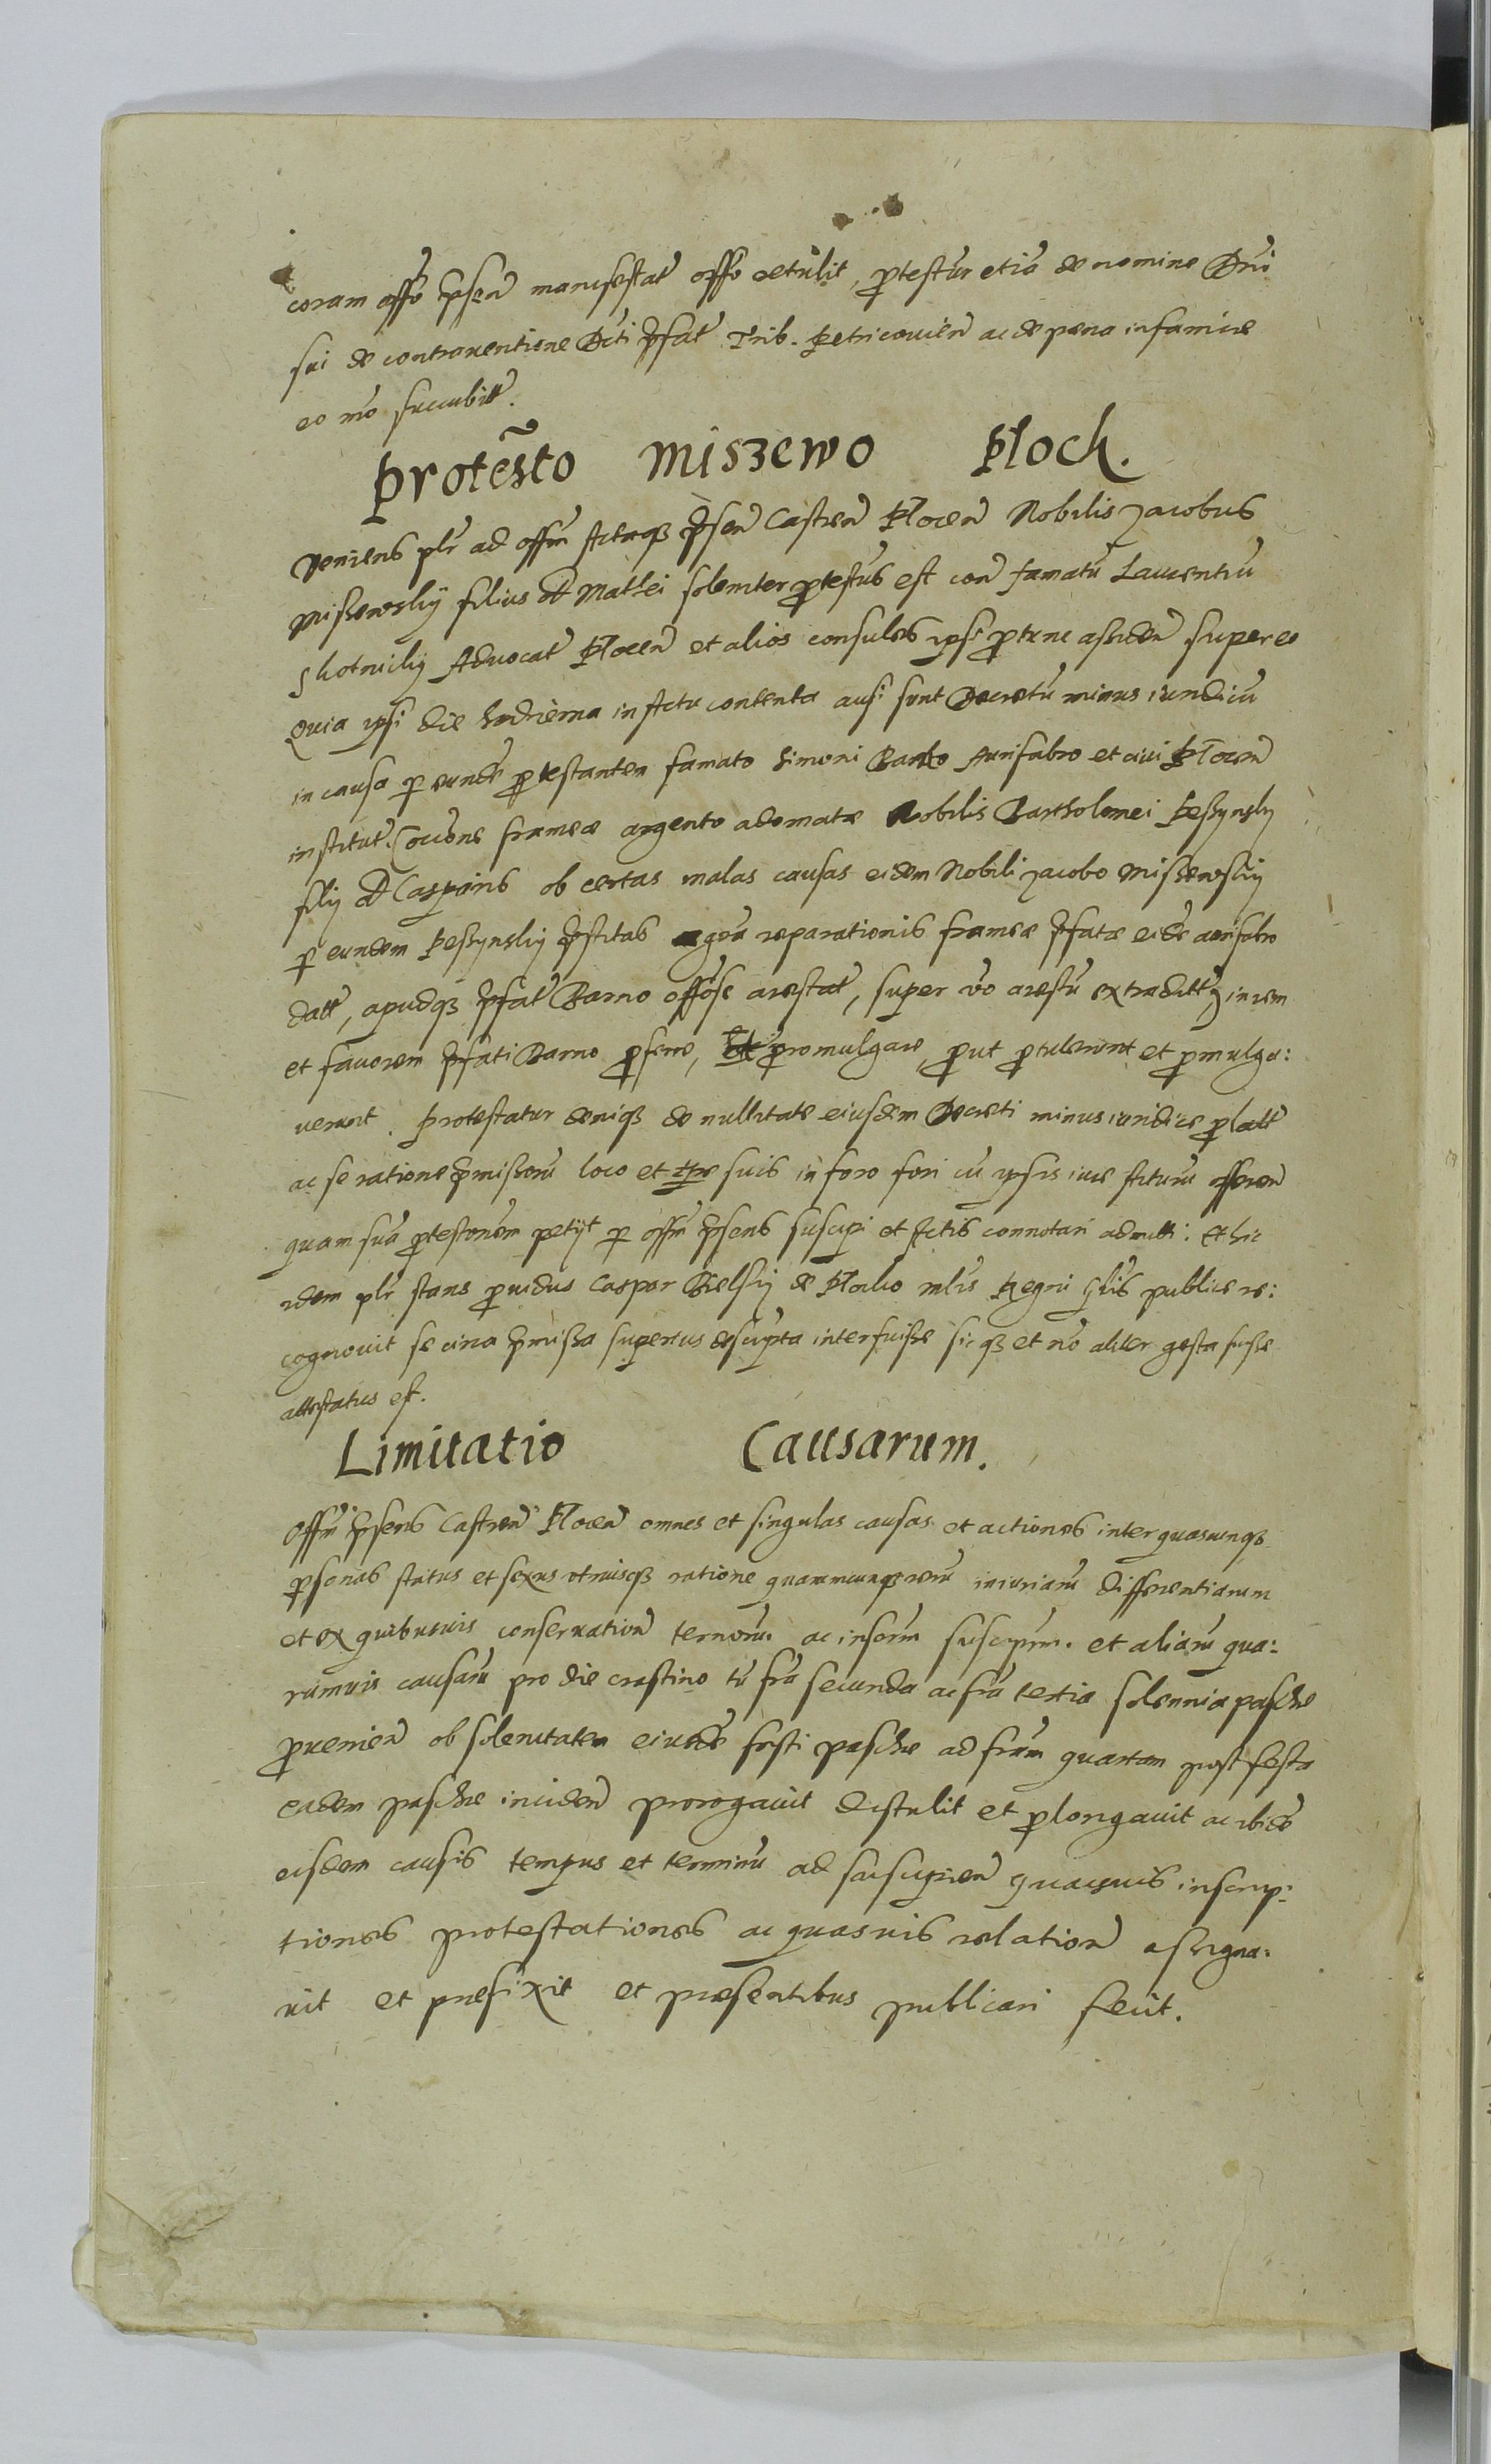 coram offo pñsen manifestat offo detulit, protestur etiã de nomine Dñi
sui de contraventione Dcti pfat Trib. Petricovien ac de pena infamiæ
eo nõ succubitt.
Protesto Miszewo Plock.
Veniens plr ad offm Actaqз pñsen Castren Plocen Nobilis Jacobus
Missewskij filius Mathei solemter protestus est con famatũ Laurentiũ
Advocat Plocen et alios consules ipsi protunc assiden super eo
Quia ipsi die hodierna in Actu contenta ausi sunt Decretũ minus iuridicũ
in causa p eundẽ protestantem famato Simoni Barno Aurifabro et civi Plocen
institut. frameæ argento adornatæ Nobilis Bartholomei Pessynsky
filij Casparis ob certas malas causas eidem Nobili Jacobo Missewskij
p eundem Pessynskij pstitas reparationis frameæ pfatæ eidẽ aurifabro
datt, apudqз pfat Barno offose arestat, super vo arestũ extraditt, in rem
et favorem pfati Barno proferre, promulgare, prout protulerunt et promulga:
verunt. Protestatur deniqз de nullitate eiusdem Decreti minus iuridice prolatt
ac se ratione pmissorũ loco et tpre suis in foro fori cũ ipsis iure staturũ offeren
quam suã protestonem petijt p offm pñsens suscipi et Actis connotari admitti: Et hic
idem plr stans providus Caspar Bielskij de Plocko mlis Regni publice re:
cognovit se circa pmissa superius descripta interfuisse sicqз et nõ aliter gesta fuisse
attestatus est.
Limitatio Causarum.
Offm pñsens Castren Plocen omnes et singulas causas et actiones inter quascunqз
personas status et sexus utriusqз ratione quarumcunqз rerũ iniuriarũ differentiarum
et ex quibusvis conservation ternorũ. ac inscrm suscipien. et aliarũ qua:
rumvis causarũ pro die crastino tũ frã secunda ac frã tertia solennia paschæ
provenien ob solenitatem eiusdẽ festi paschæ ad fram quartam post festa
eadem paschæ inciden prorogavit distulit et prolongavit ac ibidẽ
eisdem causis tempus et terminũ ad suscipien quasvis inscrip:
tiones protestationes ac quasvis relation assigna:
vit et præfixit et præsentibus publicari fecit.